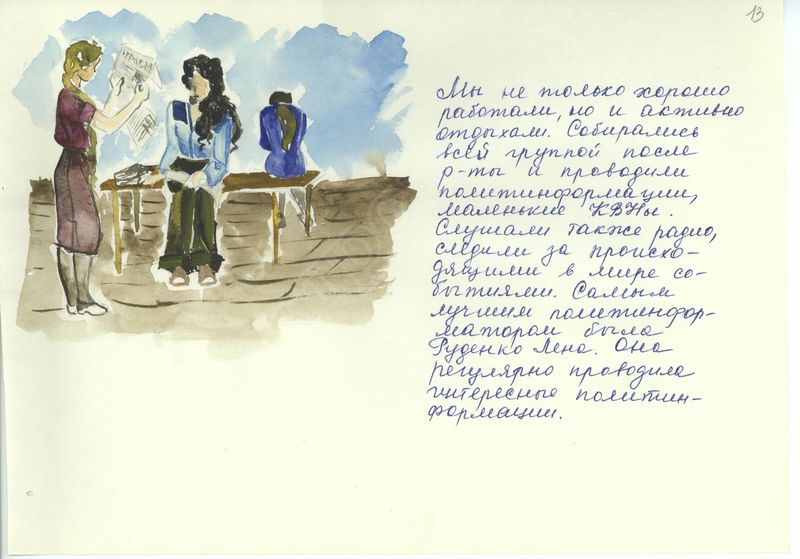 13
ПРАВДА
Мы не только хорошо
работали, но и активно
отдыхали. Собирались
всей группой после
р-ты и проводили
политинформации,
маленькие КВНы.
Слушали также радио,
следили за происхо-
дящими в мире со-
бытиями. Самым
лучшим политинфор-
матором была
Руденко Лена. Она
регулярно проводила
интересные политин-
формации.